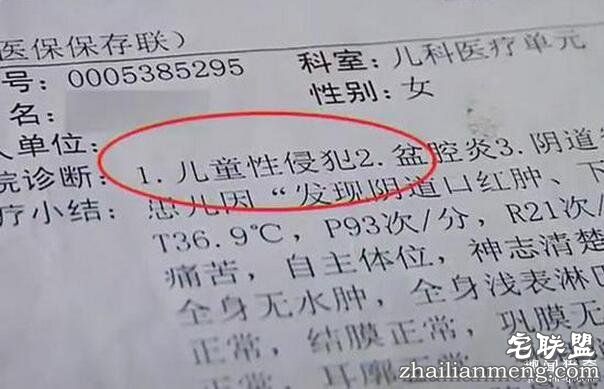 医保保存联）
号：0005385295 科室：儿科医疗单元
名： 性别：女
人单位：
院诊断：1. 儿童性侵犯2. 盆腔炎3. 阴道
疗小结：患儿因“发现阴道口红肿、下
T36.9℃，P93次/分，R21次
痛苦，自主体位，神志清楚
全身无水肿，全身浅表淋巴
正常，结膜正常，巩膜无
正常，耳郭正常
宅联盟
zhailianmeng.com